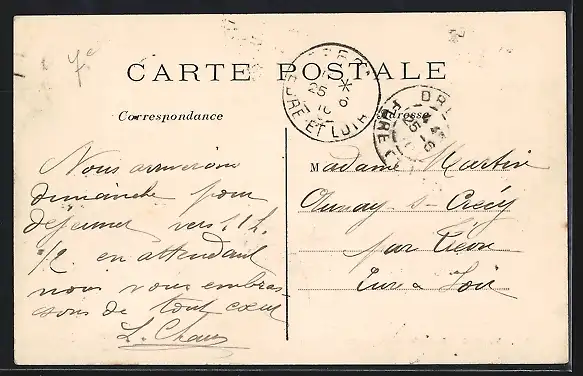 7e
CARTE POSTALE
Correspondance
Adresse
EURE ET LOIR
25
10
DR
4 45
25
EURE
Nous arriverons
dimanche pour
déjeuner vers 11 h.
1/2 en attendant
nous vous embras-
sons de tout cœur
L.
Madame Martin
Aunay s- Crécy
par
Eure & Loir